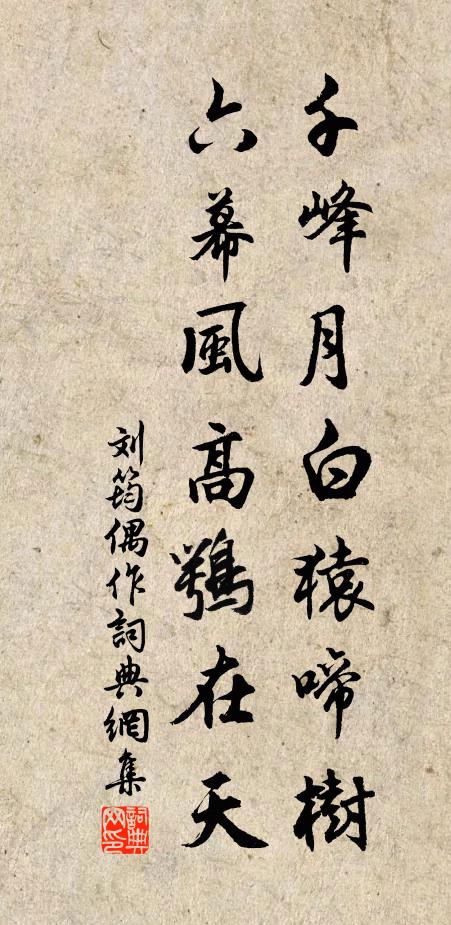 千峰月白猿啼樹
六幕風高鶚在天
刘筠偶作詞典網集
詞典網印